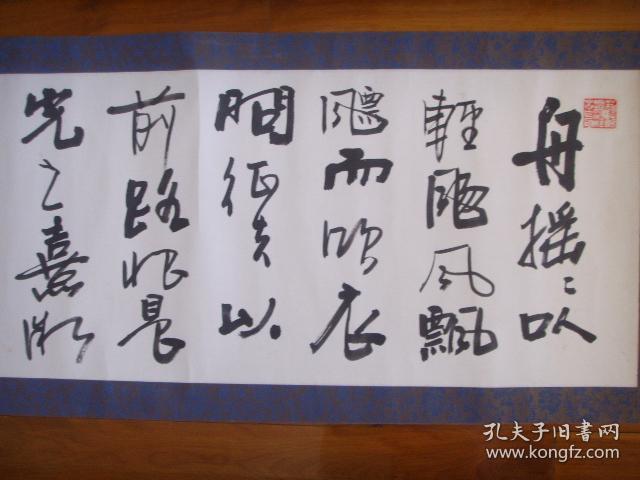 舟搖〻以
輕颺風飄
飄而吹衣
問征夫以
前路恨晨
光之熹微
孔夫子旧书网
www.kongfz.com